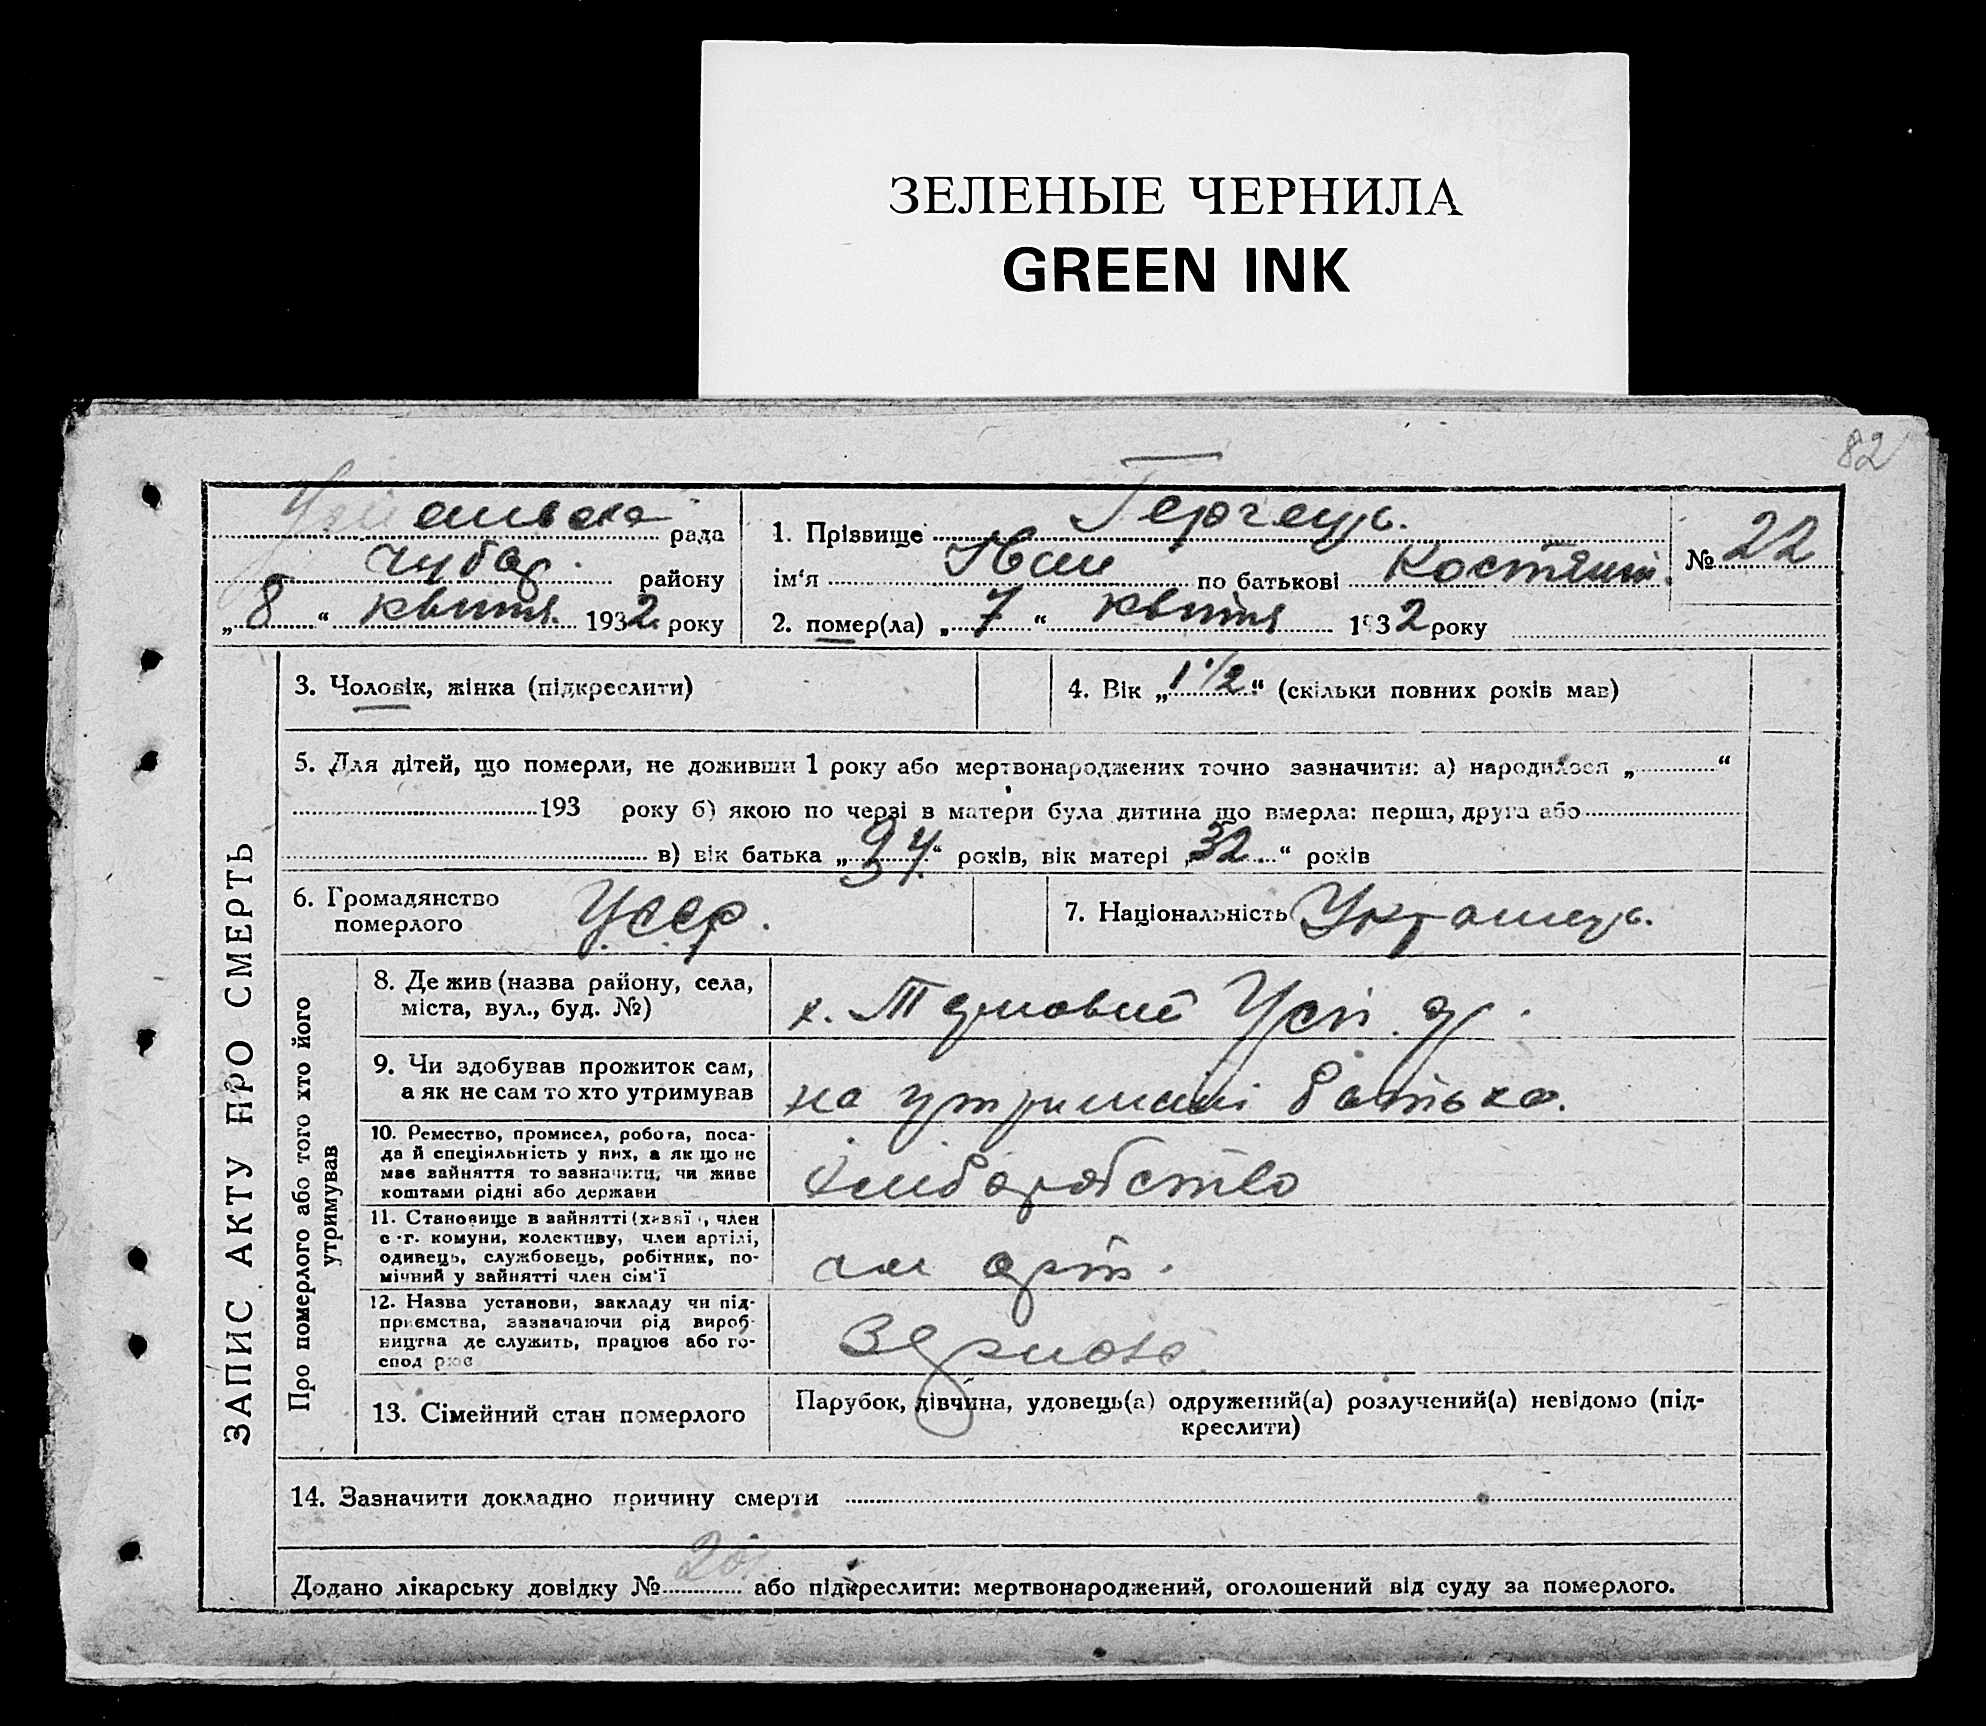 ЗЕЛЕНЫЕ ЧЕРНИЛА
GREEN INK
82
рада
Чубар. району
„8“ квітня 1932 року
1. Прізвище
ім‘я Іван по батькові Костянт.
№ 22
2. помер(ла) „7“ квітня 1932 року
ЗАПИС АКТУ ПРО СМЕРТЬ
3. Чоловік, жінка (підкреслити)
4. Вік „1 1/2“ (скільки повних років мав)
5. Для дітей, що померли, не доживши 1 року або мертвонароджених точно зазначити: а) народилося „ “
193 року б) якою по черзі в матери була дитина що вмерла: перша, друга або
в) вік батька „34“ років, вік матері „32“ років
6. Громадянство
померлого
УССР.
7. Національність Українець.
Про померлого або того хто його
утримував
8. Де жив (назва району, села,
міста, вул., буд. №)
х. Терновий
9. Чи здобував прожиток сам,
а як не сам то хто утримував
на утриманні батька.
10. Ремество, промисел, робота, поса-
да й спеціяльність у них, а як що не
має зайняття то зазначити, чи живе
коштами рідні або держави
хліборобство
11. Становище в зайнятті (хазяїн, член
с.-г. комуни, колективу, член артілі,
одинець, службовець, робітник, по-
мічний у зайнятті член сім‘ї
чл арт.
12. Назва установи, закладу чи під-
приємства, зазначаючи рід вироб-
ництва де служить, працює або го-
сподарює
Зернова
13. Сімейний стан померлого
Парубок, дівчина, удовець(а) одружений(а) розлучений(а) невідомо (під-
креслити)
14. Зазначити докладно причину смерти
Додано лікарську довідку № або підкреслити: мертвонароджений, оголошений від суду за померлого.